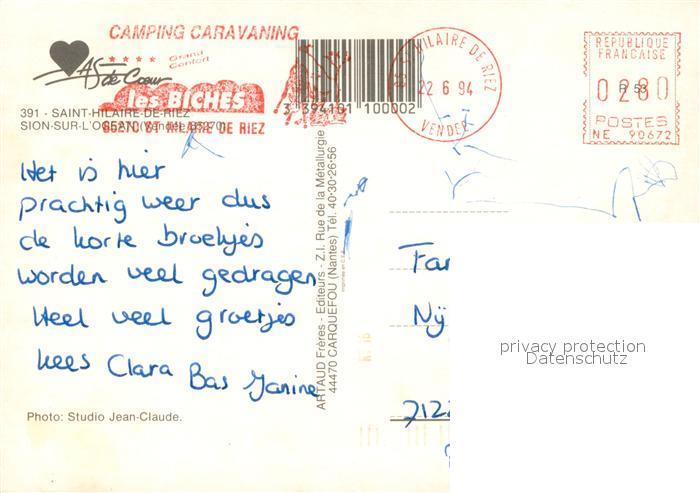 CAMPING CARAVANING
★★★★ Grand Confort
AS de Coeur
les BICHES
85270 ST HILAIRE DE RIEZ
3 394101 100002
HILAIRE DE RIEZ
22 6 94
VENDEE
REPUBLIQUE
FRANCAISE
0280
POSTES
NE 90672
391 - SAINT-HILAIRE-DE-RIEZ
SION-SUR-L'OCEAN (Vendée 85270)
Het is hier
prachtig weer dus
de korte broekjes
worden veel gedragen
Heel veel groetjes
Kees Clara Bas Janine
Photo: Studio Jean-Claude.
ARTAUD Frères - Editeurs - Z.I. Rue de la Métallurgie
44470 CARQUEFOU (Nantes) Tél. 40-30-26-56
Fa
Ny
7122
privacy protection
Datenschutz